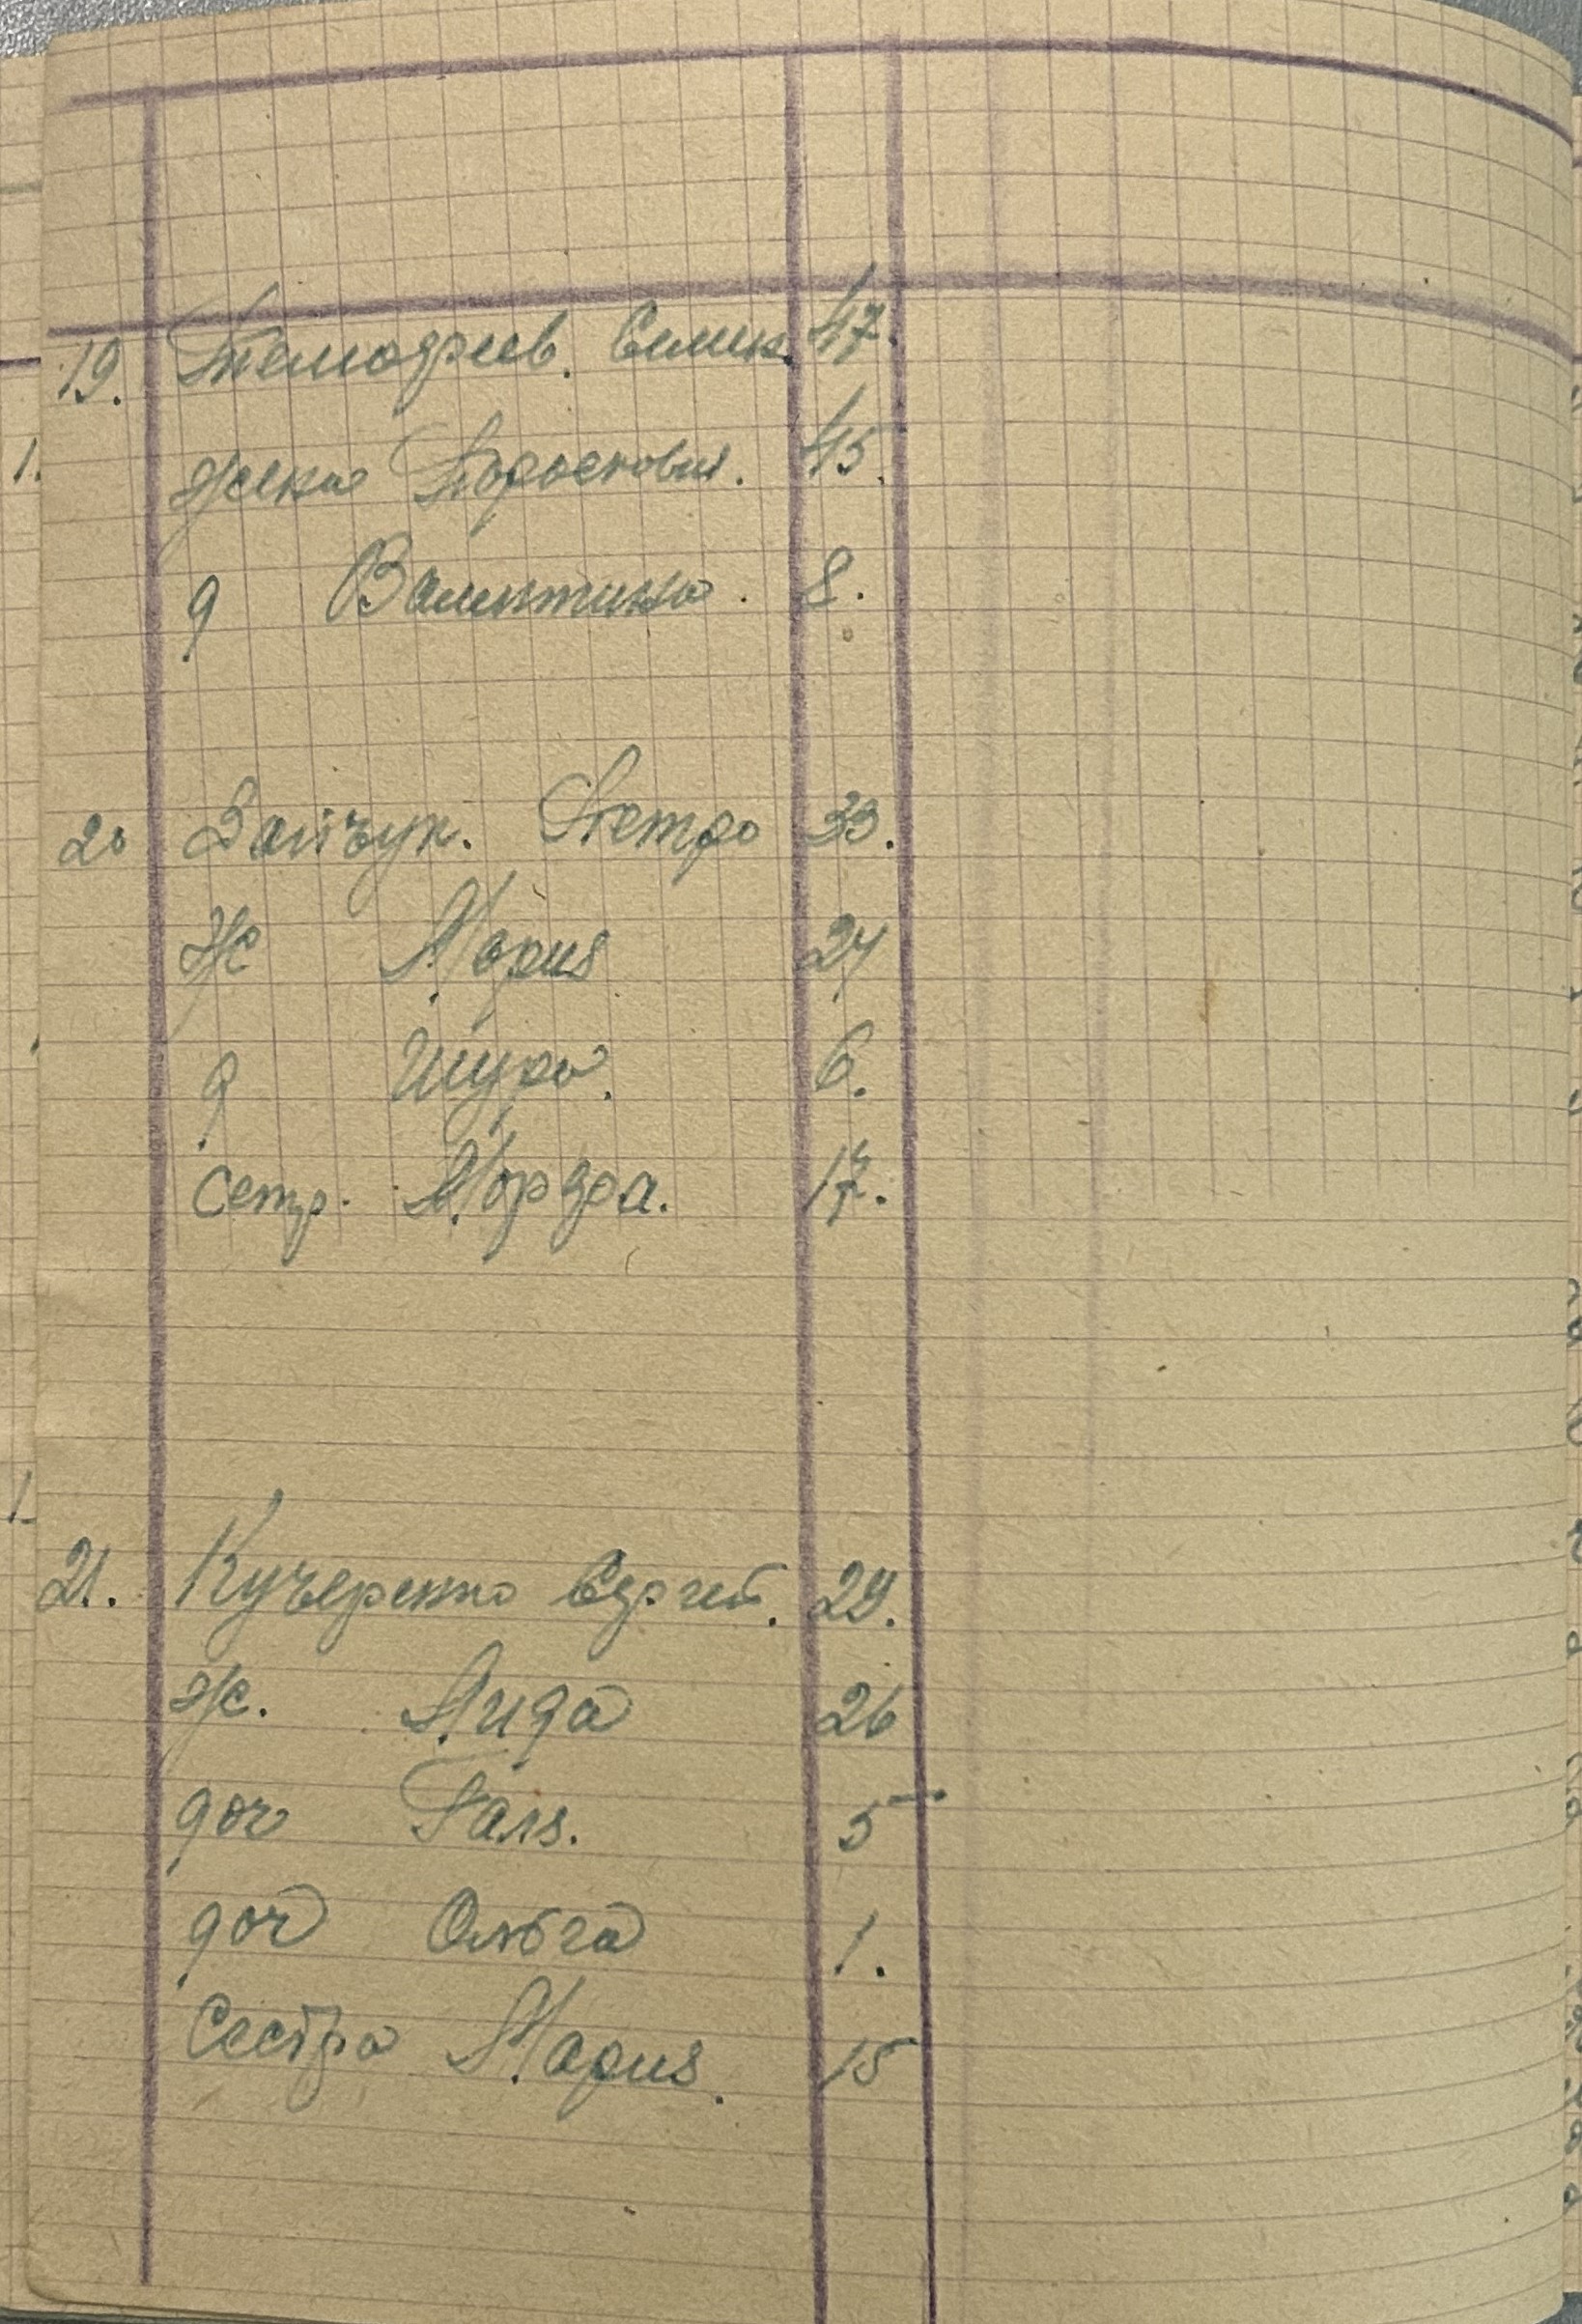 19. Семен 47.
жена Парасковия. 45.
д Валентина. 8.
20 Зайчук. Петро 33.
ж Мария 24
д Шура. 6.
сетр. 17.
21. Кучеренко Сергей. 29.
ж. Лида 26
доч Галя. 5
доч Ольга 1.
Сестра Мария. 15